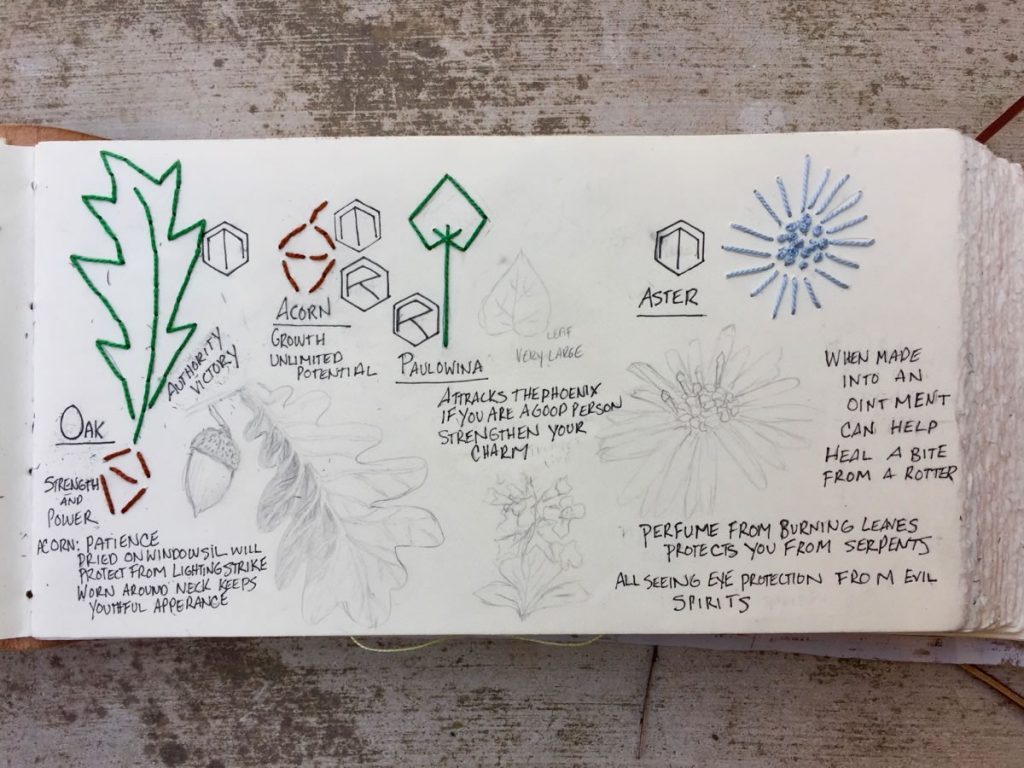 OAK
STRENGTH
AND
POWER
ACORN: PATIENCE
DRIED ON WINDOWSIL WILL
PROTECT FROM LIGHTING STRIKE
WORN AROUND NECK KEEPS
YOUTHFUL APPERANCE
AUTHORITY
VICTORY
ACORN
GROWTH
UNLIMITED
POTENTIAL
R
R
PAULOWINA
LEAF
VERY LARGE
ATTRACKS THE PHOENIX
IF YOU ARE A GOOD PERSON
STRENGTHEN YOUR
CHARM
ASTER
WHEN MADE
INTO AN
OINTMENT
CAN HELP
HEAL A BITE
FROM A ROTTER
PERFUME FROM BURNING LEAVES
PROTECTS YOU FROM SERPENTS
ALL SEEING EYE PROTECTION FROM EVIL
SPIRITS